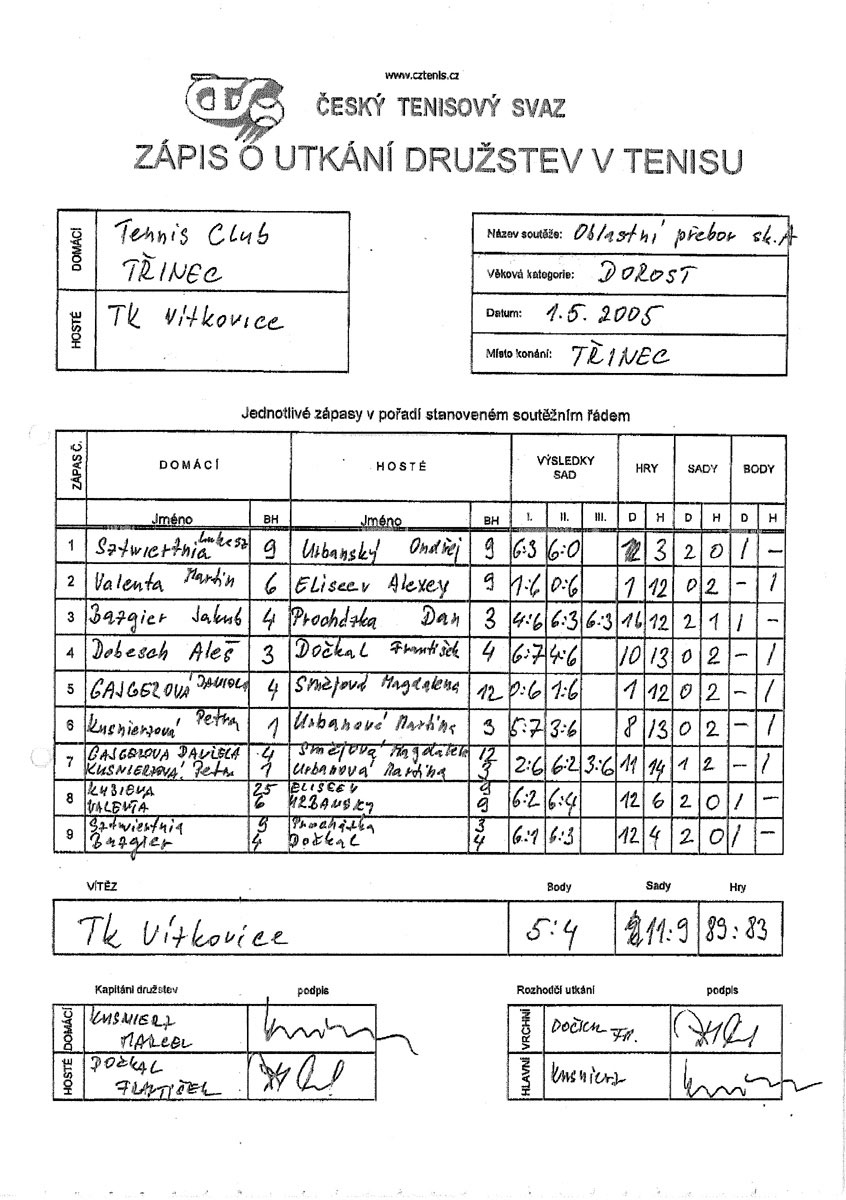 www.cztenis.cz
ČESKÝ TENISOVÝ SVAZ
ZÁPIS O UTKÁNÍ DRUŽSTEV V TENISU
DOMÁCÍ Tennis Club
TŘINEC
HOSTÉ TK Vítkovice
Název soutěže: Oblastní přebor sk. A
Věková kategorie: DOROST
Datum: 1.5. 2005
Místo konání: TŘINEC
Jednotlivé zápasy v pořadí stanoveném soutěžním řádem
ZÁPAS Č. DOMÁCÍ HOSTÉ VÝSLEDKY SAD HRY SADY BODY
Jméno BH Jméno BH I. II. III. D H D H D H
1 Sztwiertnia Lukasz 9 Urbanský Ondřej 9 6:3 6:0 12 3 2 0 1 –
2 Valenta Martin 6 Eliseev Alexey 9 1:6 0:6 1 12 0 2 – 1
3 Bazgier Jakub 4 Procházka Dan 3 4:6 6:3 6:3 16 12 2 1 1 –
4 Dobesch Aleš 3 Dočkal František 4 6:7 4:6 10 13 0 2 – 1
5 GAJGEROVÁ DANIELA 4 Smějová Magdalena 12 0:6 1:6 1 12 0 2 – 1
6 Kusnierzová Petra 1 Urbanová Martina 3 5:7 3:6 8 13 0 2 – 1
7 GAJGEROVA DANIELA 4 Smějová Magdalena 12 2:6 6:2 3:6 11 14 1 2 – 1
KUSNIERZOVÁ Petra 1 Urbanová Martina 3
8 25 ELISEEV 9 6:2 6:4 12 6 2 0 1 –
VALENTA 6 URBANSKY 9
9 Sztwiertnia 9 Procházka 3 6:1 6:3 12 4 2 0 1 –
Bazgier 4 Dočkal 4
VÍTĚZ Body Sady Hry
TK Vítkovice 5:4 11:9 89:83
Kapitáni družstev podpis
DOMÁCÍ KUSNIERZ
MARCEL
HOSTÉ DOČKAL
FRANTIŠEK
Rozhodčí utkání podpis
VRCHNÍ DOČKAL FR.
HLAVNÍ KUSNIERZ